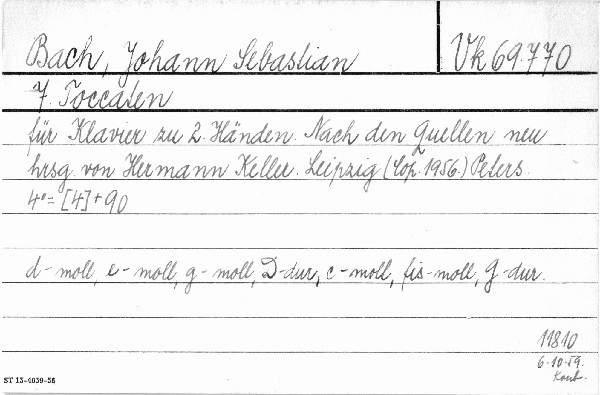 Bach, Johann Sebastian
Vk 69.770
7. Toccaten
für Klavier zu 2. Händen. Nach den Quellen neu
hrsg. von Hermann Keller. Leipzig (Cop. 1956.) Peters.
4° = [4] + 90
d-moll, e-moll, g-moll, D-dur, c-moll, fis-moll, G-dur.
11810
6.10.59.
ST 13-4039-56